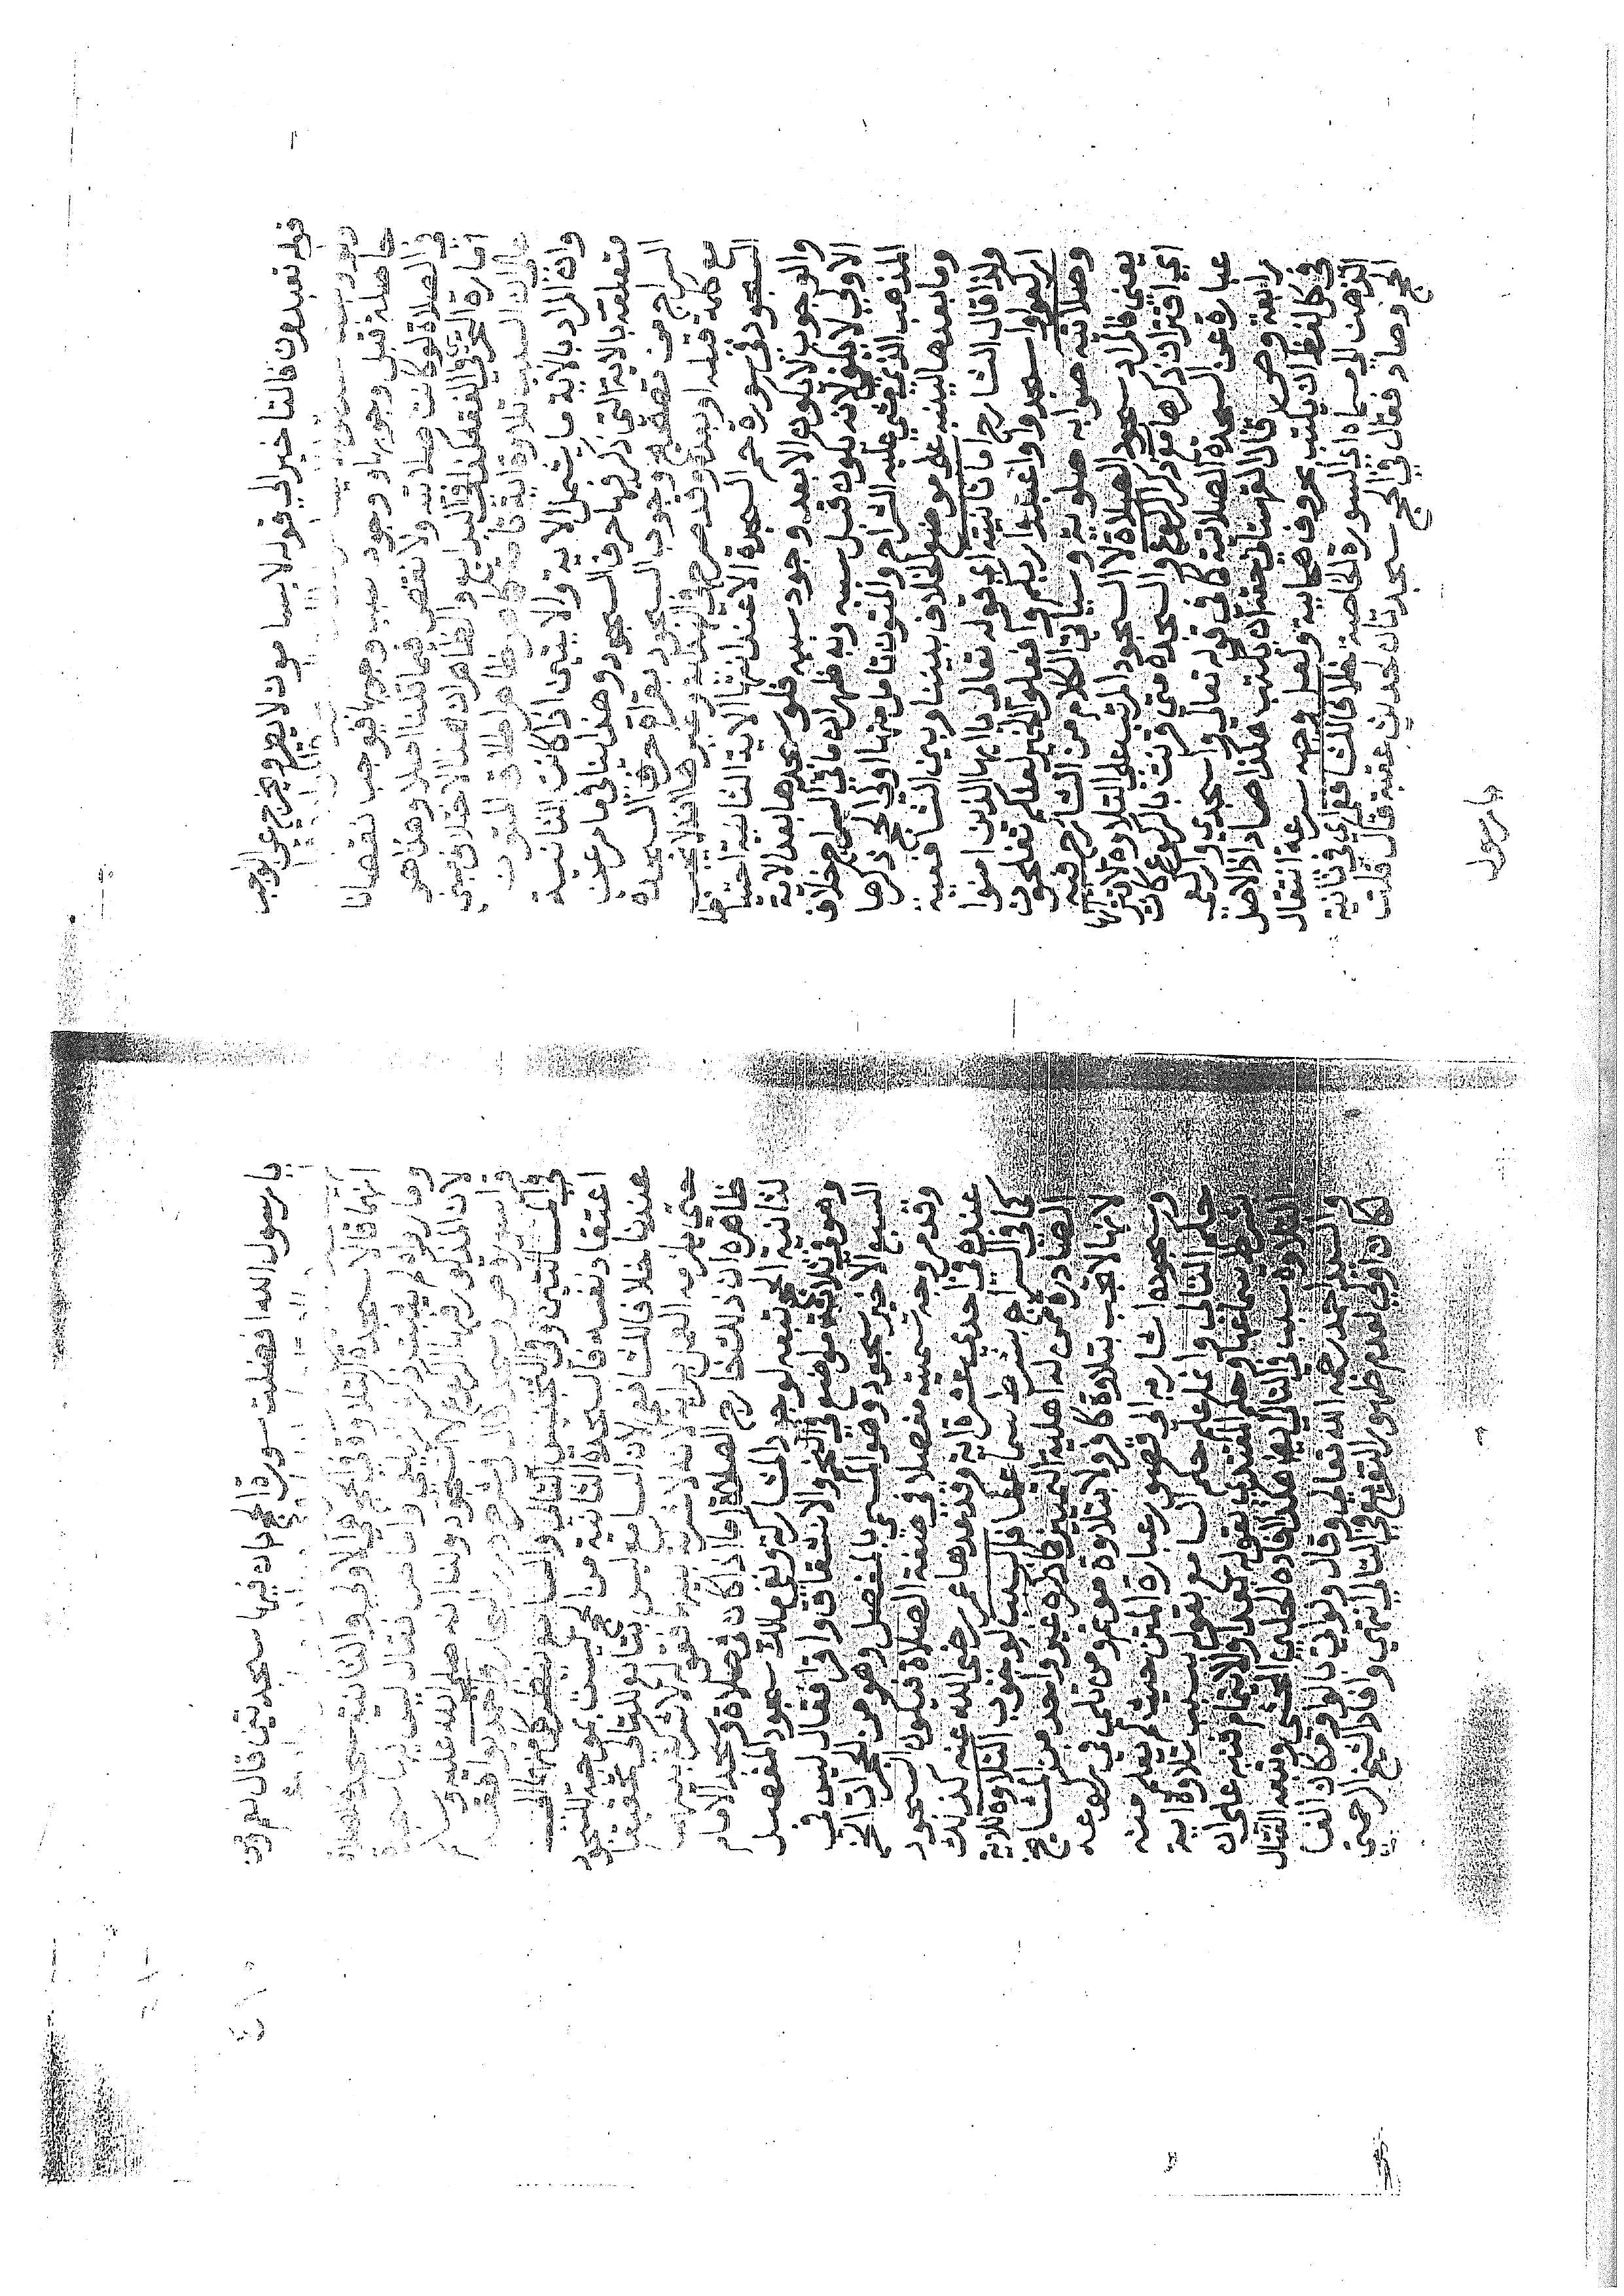 قوله تعبدون فالتاخير الى قوله لا يسامون لا يضر ويخرج عن الواجب
حاصلة قبل وجوبها ووجود سبب وجوبها فيوجب نقصانا
في الصلاة لو كانت صلاتية ولا نقص فيما قلنا اصلا وهذا هو
امارة التبحر في الفقه كذا في البدايع والظاهر ان هذا الاختلاف مبني
على ان السبب تلاوة اية تامة كما هو ظاهر اطلاق المتون
وان المراد بالاية ما يشمل الاية والايتين اذا كانت الثانية
متعلقة بالاية التي ذكر فيها حرف السجود وهذا ينافي ما مر عن
السراج من تصحيح وجوب السجود بقراة حرف السجدة
مع كلمة قبله او بعده وقد صرح في النهاية وغيرها فلا يجب
السجود في سورة حم السجدة الا عند انتها الاية الثانية احتياطا
والوجوب لا يكون الا بعد وجود سببه فلو سجدها بعد الاية
الاولى لا يكفي لانه يكون قبل سببه وبه ظهر ان ما في السراج خلاف
المذهب الذي مشي عليه الشراح والمتون تامل منها اولى الحج ذكرها
وما بعدها لبينه على موضع الخلاف بيننا وبين الشافعية
ولذا قال الشارح اما ثانية اي قوله تعالى يا ايها الذين امنوا
اركعوا واسجدوا واعبدوا ربكم وافعلوا الخير لعلكم تفلحون
وصلاتية صوابه صلوية وسياتي الكلام من الشارح فيه
يعني فالمراد سجود الصلاة لا السجود المرتب على التلاوة لاقترانها
اي اقتران ذكرها مع ذكر الركوع والسجدة متي قرنت بالركوع كانت
عبارة عن السجدة الصلاتية كما في قوله تعالي واسجدي واركعي
رابعة وص قال القهستاني حقه ان يكتب هكذا صاد اذ الاصل
في كل لفظ ان يكتب بحروف هجائية ولعل وجهه سرعة انتقال
الذهن الي مسماه اي السورة الخاصة خلافا للشافعي اي في ثانية
الحج وصاد فقال في الحج سجدتان لحديث عقبة قال قلت
يا رسول
يا رسول الله افضلت سورة الحج بان فيها سجدتين قال نعم
انهما قالا سجدة التلاوة في الحج هي الاولى والثانية سجدة الصلاة
وما رواه لم يثبت ذكره الزيلعي واما ص فقال ليس فيها سجدة
لان المذكور فيها الركوع لا السجود ولنا انه صلى الله عليه وسلم
قرا سورة ص وسجد قال في شرح درر البحار واحمد يوافقه
في المسالتين وفي التجنيس التالي والسامع ينظر كل منهما الى
اعتقاد نفسه فالسجدة الثانية من الحج ليست بموجبة للسجود
عندنا خلافا للشافعي لان السامع ليس بتابع للتالي تحقيقا
حتى يلزمه العمل برايه لانه لا شركة بينهما فقوله لا شركة بينهما
ظاهره ان ذلك خارج الصلاة اما اذا كان في صلاة وسجد الامام
لثانية الحج تبعه لوجود المشاركة ونفى ملك سجود المفصل
وهو في ثلاثة مواضع في النجم والانشقاق واقرا فقال ليس في
السبع الاخير سجود وهو المسمى بالمفصل وهو من الحجرات الخ
وقد مر وجه تسميته مفصلا في صفة الصلاة فيكون السجود
عنده في احدي عشرة اية وقد عدها عمر رضي الله عنه كذلك
كما في السراج بشرط سماعها فالسبب لوجوب التلاوة
الصادرة ممن له اهلية التمييز كما ذكره غير واحد من المشايخ
لانها لا تجب بتلاوة كافر ولا بتلاوة موتم ومن تلى في ركوعه
وسجوده اشار به الى قصور عبارة المتن حيث لم يعلم منه
حكم التالي وانما علم حكم السامع بقوله بسبب تلاوة اية
بشرط سماعها وحكم المقتدي بقوله بعد او الايتمام فنبه على ان
التلاوة سبب في التالي ايضا هذا افاده الحلبي المحشي وتبعه الفتال
والسيد احمد رحمه الله تعالى وقال ولو اتي بالواو مكان الفا
لكان اولى لعدم ظهور التفريع في التالي انتهي وافاد الشيخ الرحمتي